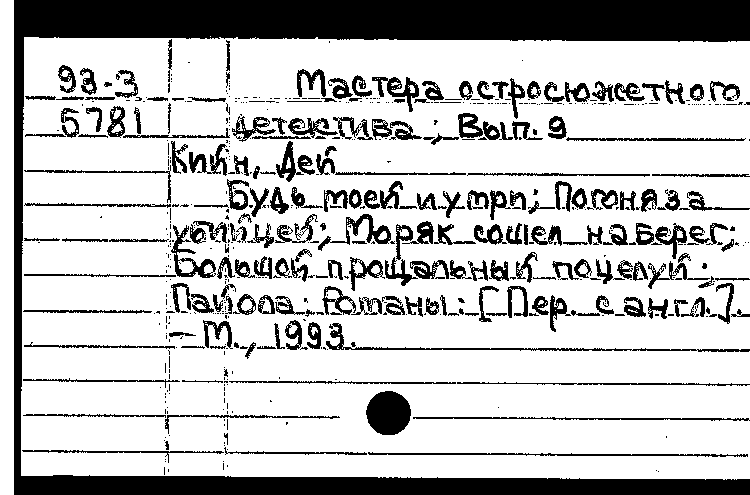 93-3 Мастера остросюжетного
5781 детектива; Вып. 9
Кийн, Дей
Будь моей и умри; Погоня за
убийцей; Моряк сошел на берег;
Большой прощальный поцелуй;
Пайола: Романы: [Пер. с англ.].
— М., 1993.